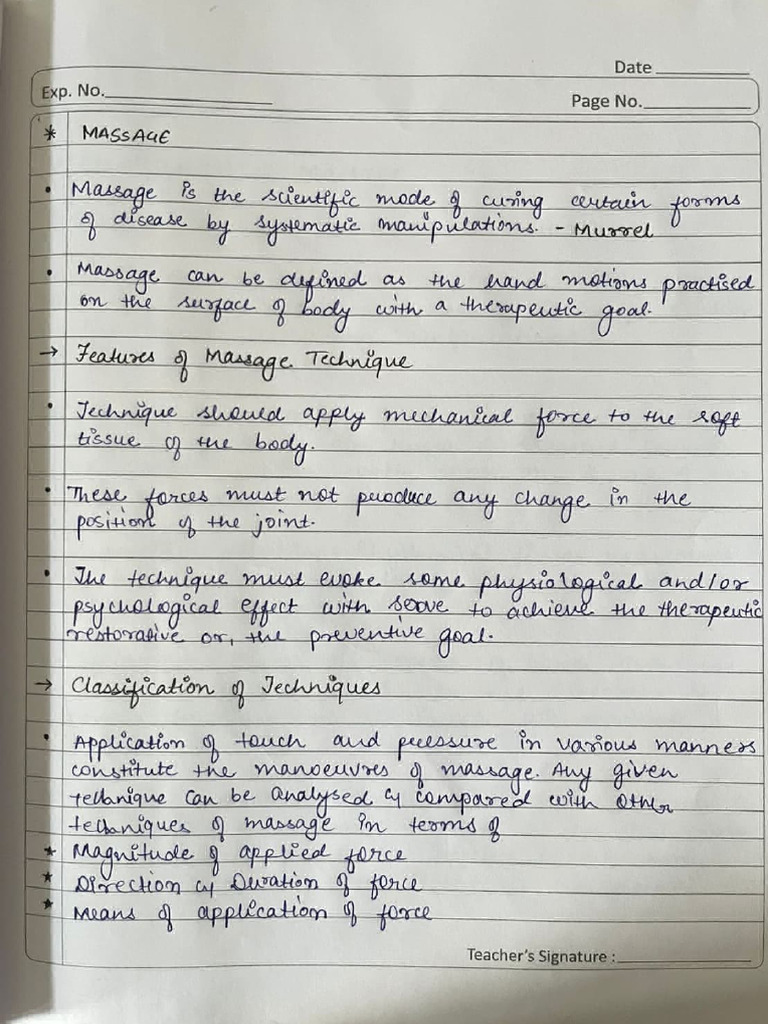 Date
Exp. No.
Page No.
* MASSAGE
• Massage is the scientific mode of curing certain forms
of disease by systematic manipulations. - Murrel
• Massage can be defined as the hand motions practised
on the surface of body with a therapeutic goal.
→ Features of Massage Technique
• Technique should apply mechanical force to the soft
tissue of the body.
• These forces must not produce any change in the
position of the joint.
• The technique must evoke some physiological and/or
psychological effect with serve to achieve the therapeutic
restorative or, the preventive goal.
→ Classification of Techniques
• Application of touch and pressure in various manners
constitute the manoeuvres of massage. Any given
technique can be analysed & compared with other
techniques of massage in terms of
★ Magnitude of applied force
★ Direction & Duration of force
★ Means of application of force
Teacher's Signature :